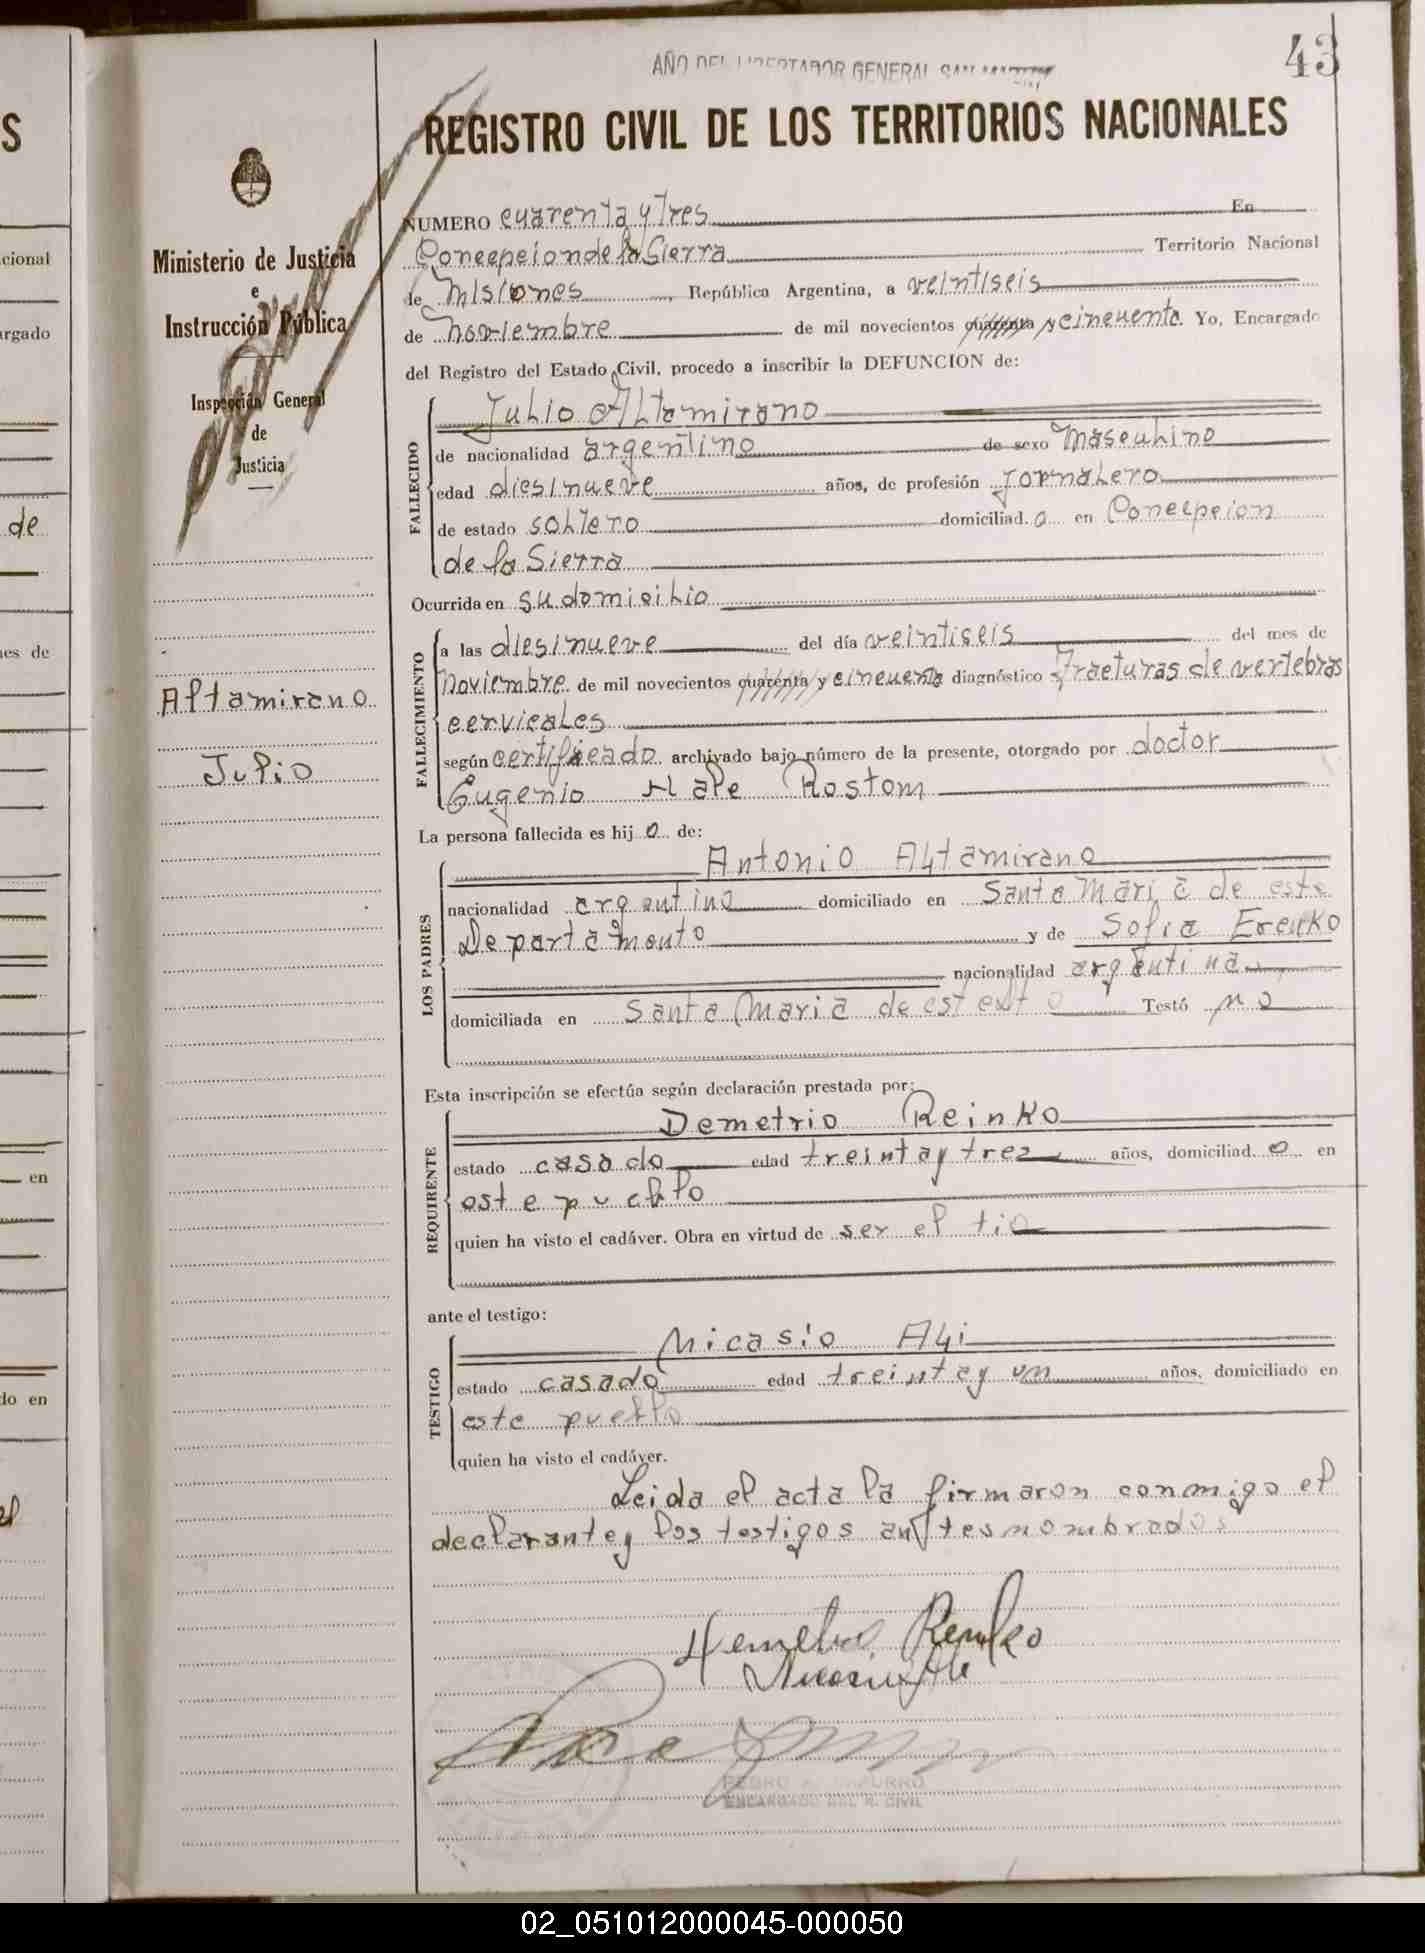 43
AÑO DEL LIBERTADOR GENERAL SAN MARTIN
REGISTRO CIVIL DE LOS TERRITORIOS NACIONALES
Ministerio de Justicia
e
Instrucción Pública
Inspección General
de
Justicia
Altamirano
Julio
NUMERO cuarenta y Tres En
Concepcion de la Sierra Territorio Nacional
de Misiones, República Argentina, a veintiseis
de noviembre de mil novecientos cuarenta y cincuenta. Yo, Encargado
del Registro del Estado Civil, procedo a inscribir la DEFUNCION de:
FALLECIDO
Julio Altamirano
de nacionalidad argentino de sexo Masculino
edad diesinueve años, de profesión Jornalero
de estado soltero domiciliad.o en Concepcion
de la Sierra
Ocurrida en su domicilio
FALLECIMIENTO
a las diesinueve del día veintiseis del mes de
Noviembre de mil novecientos cuarenta y cincuenta diagnóstico Fracturas de vertebras
cervicales
según certificado archivado bajo número de la presente, otorgado por doctor
Eugenio Hale Rostom
La persona fallecida es hij o de:
LOS PADRES
Antonio Altamirano
nacionalidad argentino domiciliado en Santa Maria de este
Departamento y de Sofia Erenko
nacionalidad argentina
domiciliada en Santa Maria de est Testó no
Esta inscripción se efectúa según declaración prestada por:
REQUIRENTE
Demetrio Reinko
estado casado edad treinta y tres años, domiciliad o en
este pueblo
quien ha visto el cadáver. Obra en virtud de ser el tio
ante el testigo:
TESTIGO
Nicasio Ali
estado casado edad treinta y un años, domiciliado en
este pueblo
quien ha visto el cadáver.
Leida el acta la firmaron conmigo el
declarante y los testigos antes nombrados
Demetrio Reinko
PEDRO
ENCARGADO DEL R. CIVIL
S
cional
argado
de
es de
en
do en
el
02_051012000045-000050